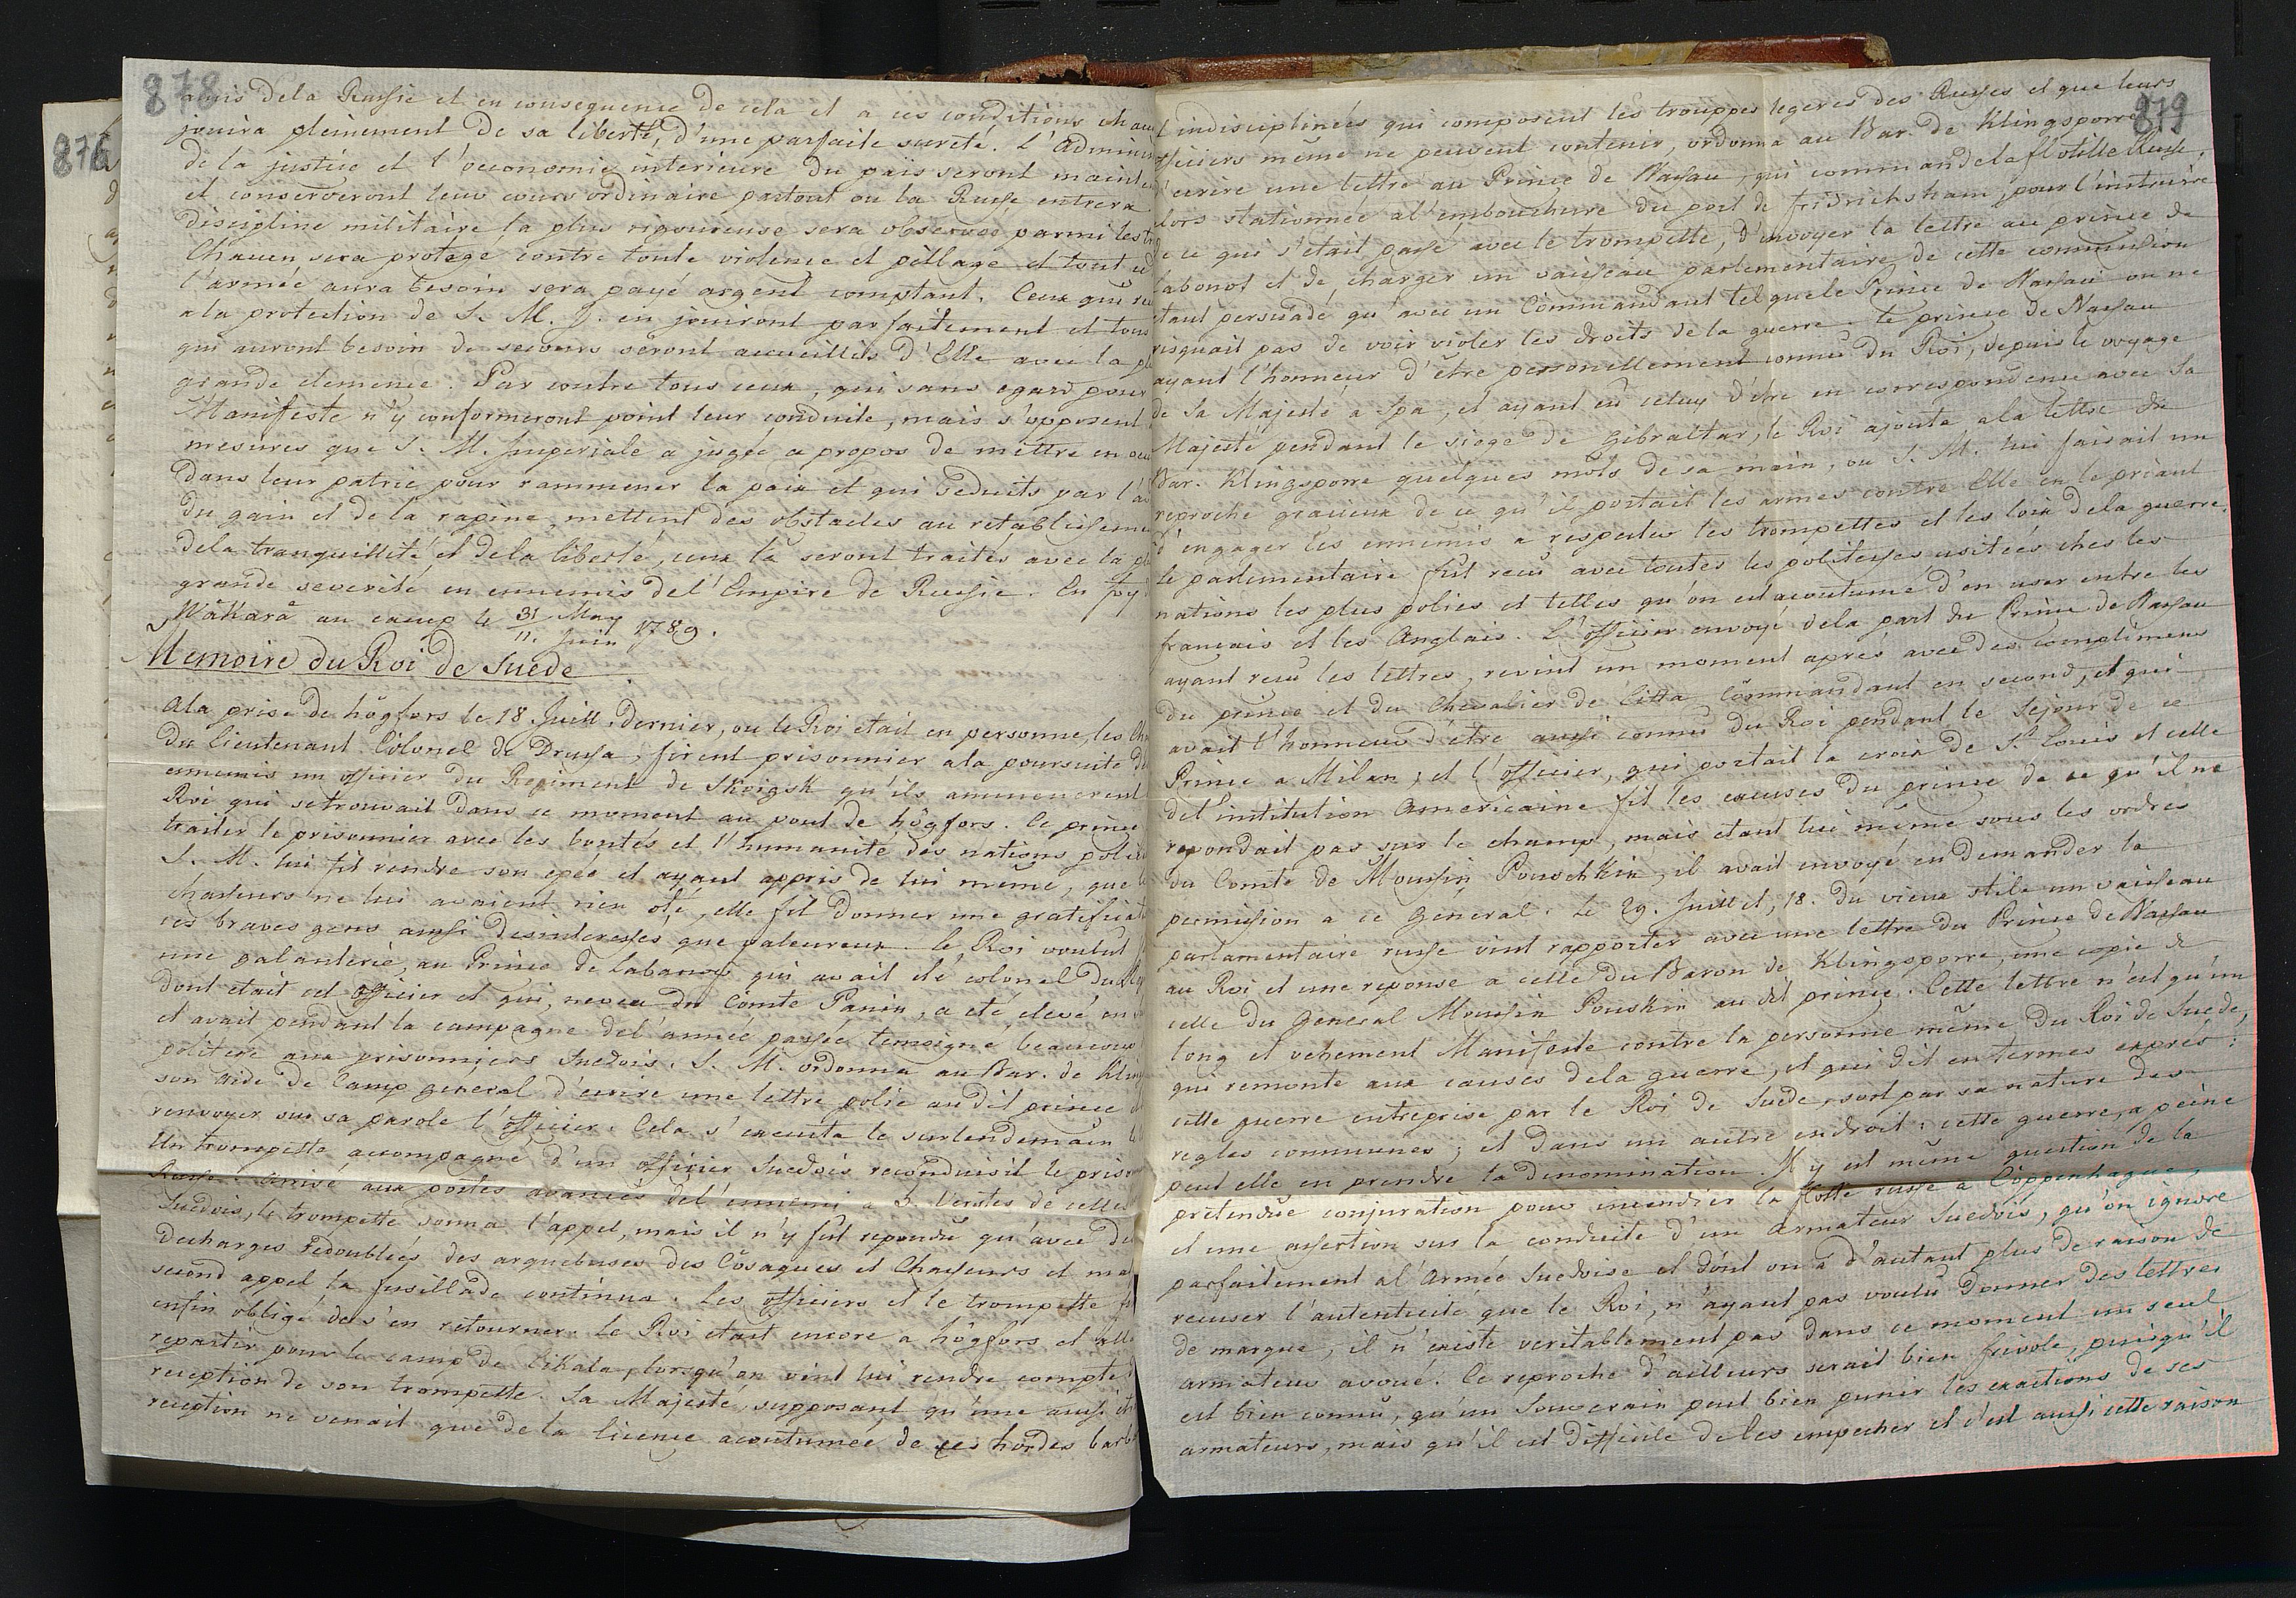 878
amis dela Russie et en consequence de cela et a ces conditions chacu
jouira pleinement de sa liberté, d'une parfaite sureté. L'Admini
de la justice et l'oeconomie interieure du païs seront mainte
et conserveront leur cours ordinaire partout ou la Russe entrera
discipline militaire la plus rigoureuse sera observée parmi les tr
Chacun sera protegé contre toute violence et pillage et tout ce d
l'armée aura besoin sera payé argent comptant. Ceux qui re
a la protection de S. M. J. en jouiront parfaitement et tous
qui auront besoin de secours seront accueillis d'Elle avec la pl
grande clemence. Par contre tous ceux, qui sans egard pour
Manifeste n'y conformeront point leur conduite, mais s'opposent
mesures que S. M. Imperiale a jugée a propos de mettre en oeu
dans leur patrie pour rammener la paix et qui seduits par l'a
du gain et de la rapine, mettent des obstacles au retablisseme
dela tranquillité et dela liberté, ceux là seront traités avec la pl
grande severité en ennemis del'Empire de Russie. En foy
Wäkärä au camp le 31 May / 11. Juin 1789.
Memoire du Roi de Suede
Ala prise de högfors le 18. Juill. dernier, ou le Roi etait en personne, les Cha
du Lieutenant Colonel de Drusa, firent prisonnier ala poursuite de
ennemis un officier du Regiment de qu'ils ammenerent
Roi qui se trouvait dans ce moment au pont de högfors. Ce prince
traiter le prisonnier avec les bontés et l'humanité des nations polic
S. M. lui fit rendre son epée et ayant appris de lui même, que le
chasseurs ne lui avaient rien oté, elle fit donner une gratificat
ces braves gens aussi desinteresses que valeureux. Le Roi voulut f
une galanterie, au Prince de Labanof qui avait eté colonel du Reg
dont etait cet officier et qui, neveu du Comte Panin, a eté elevé en
et avait pendant la campagne del'année passée temoigné beaucoup
politesse aux prisonniers Suedois. S. M. ordonna au Bar. de Klin
son Aide de Camp general d'ecrire une lettre polie au dit prince et
renvoyer sur sa parole l'officier. Cela s'executa le surlendemain le
Un trompette accompagné d'un officier Suedois reconduisit le prison
Russe. Arrivé aux postes avancés del'ennemi a 3. Verstes de celles
Suedois, le trompette sonna l'appel, mais il n'y fut repondu qu'avec de
decharges redoublées des arquebuses des Cosaques et Chasseurs et mal
second appel la fusillade continua. Les officiers et le trompette fu
enfin obligé de s'en retourner. Le Roi etait encore a högfors et alla
repartir pour le camp de Likala, lorsqu'on vint lui rendre compte d
reception de son trompette. Sa Majesté, supposant qu'une aussi etr
reception ne venait que de la licence acoutumée de ces hordes barb
879
t indisciplinées qui composent les trouppes legeres des Russes et que leurs
officiers même ne peuvent contenir, ordonna au Bar. de Klingsporre
d'ecrire une lettre au Prince de Nassau, qui commandela flotille Russe,
lors stationnée al'embouchure du port de fridrichsham, pour l'instruire
de ce qui s'etait passé avec le trompette, d'envoyer la lettre au prince de
Labonof et de charger un vaisseau parlementaire de cette commission
etant persuadé qu'avec un Commandant tel que le Prince de Nassau on ne
risquait pas de voir violer les droits de la guerre. Le prince de Nassau
ayant l'honneur d'être personellement connu du Roi, depuis le voyage
de Sa Majesté a Spa, et ayant eû celuy d'être en correspondence avec Sa
Majesté pendant le siege de Gibraltar, le Roi ajouta, ala lettre du
Bar. Klingsporre quelques mots de sa main, ou S. M. lui faisait un
reproche gracieux de ce qu'il portait les armes contre Elle en le priant
d'engager les ennemis a respecter les trompettes et les loix dela guerre.
le parlementaire fut recu avec toutes les politesses usitées ches les
nations les plus polies et telles qu'on est acoutumé d'en user entre les
francais et les Anglais. L'officier envoyé dela part du Prince de Nassau
ayant recu les lettres, revint un moment aprés avec des complimens
du prince et du Chevalier de Litta Commandant en second, et qui
avait l'honneur d'être aussi connu du Roi pendant le sejour de ce
Prince a Milan; et l'officier, qui portait la croix de St. Louis et celle
del'institution Americaine fit les excuses du prince de ce qu'il ne
repondait pas sur le champ, mais etant lui même sous les ordres
du Comte de Moussin Pouschkin, il avait envoyé en demander la
permission a ce General. Le 29. Juillet, 18. du vieux stile un vaisseau
parlamentaire russe vint rapporter avec une lettre du Prince de Nassau
au Roi et une reponse a celle du Baron de Klingsporre, une copie de
celle du General Moussin Pouskin au dit prince. Cette lettre n'est qu'un
long et vehement Manifeste contre la personne même du Roi de Suede,
qui remonte aux causes dela guerre, et qui dit en termes exprés:
cette guerre entreprise par le Roi de Suede, sort par sa nature des
regles communes; et dans un autre endroit: cette guerre, a peine
peut elle en prendre la denomination. Il y est même question de la
pretendue conjuration pour incendier la flotte russe a Coppenhague,
et une assertion sur la conduite d'un armateur Suedois, qu'on ignore
parfaitement al'Armée Suedoise et dont on a d'autant plus de raison de
recuser l'autenticité que le Roi, n'ayant pas voulu donner des lettres
de marque, il n'existe veritablement pas dans ce moment un seul
armateur avoué. Ce reproche d'ailleurs serait bien frivole, puisqu'il
est bien connu, qu'un Souverain peut bien punir les exactions de ses
armateurs, mais qu'il est difficile de les empecher et c'est aussi cette raison
876